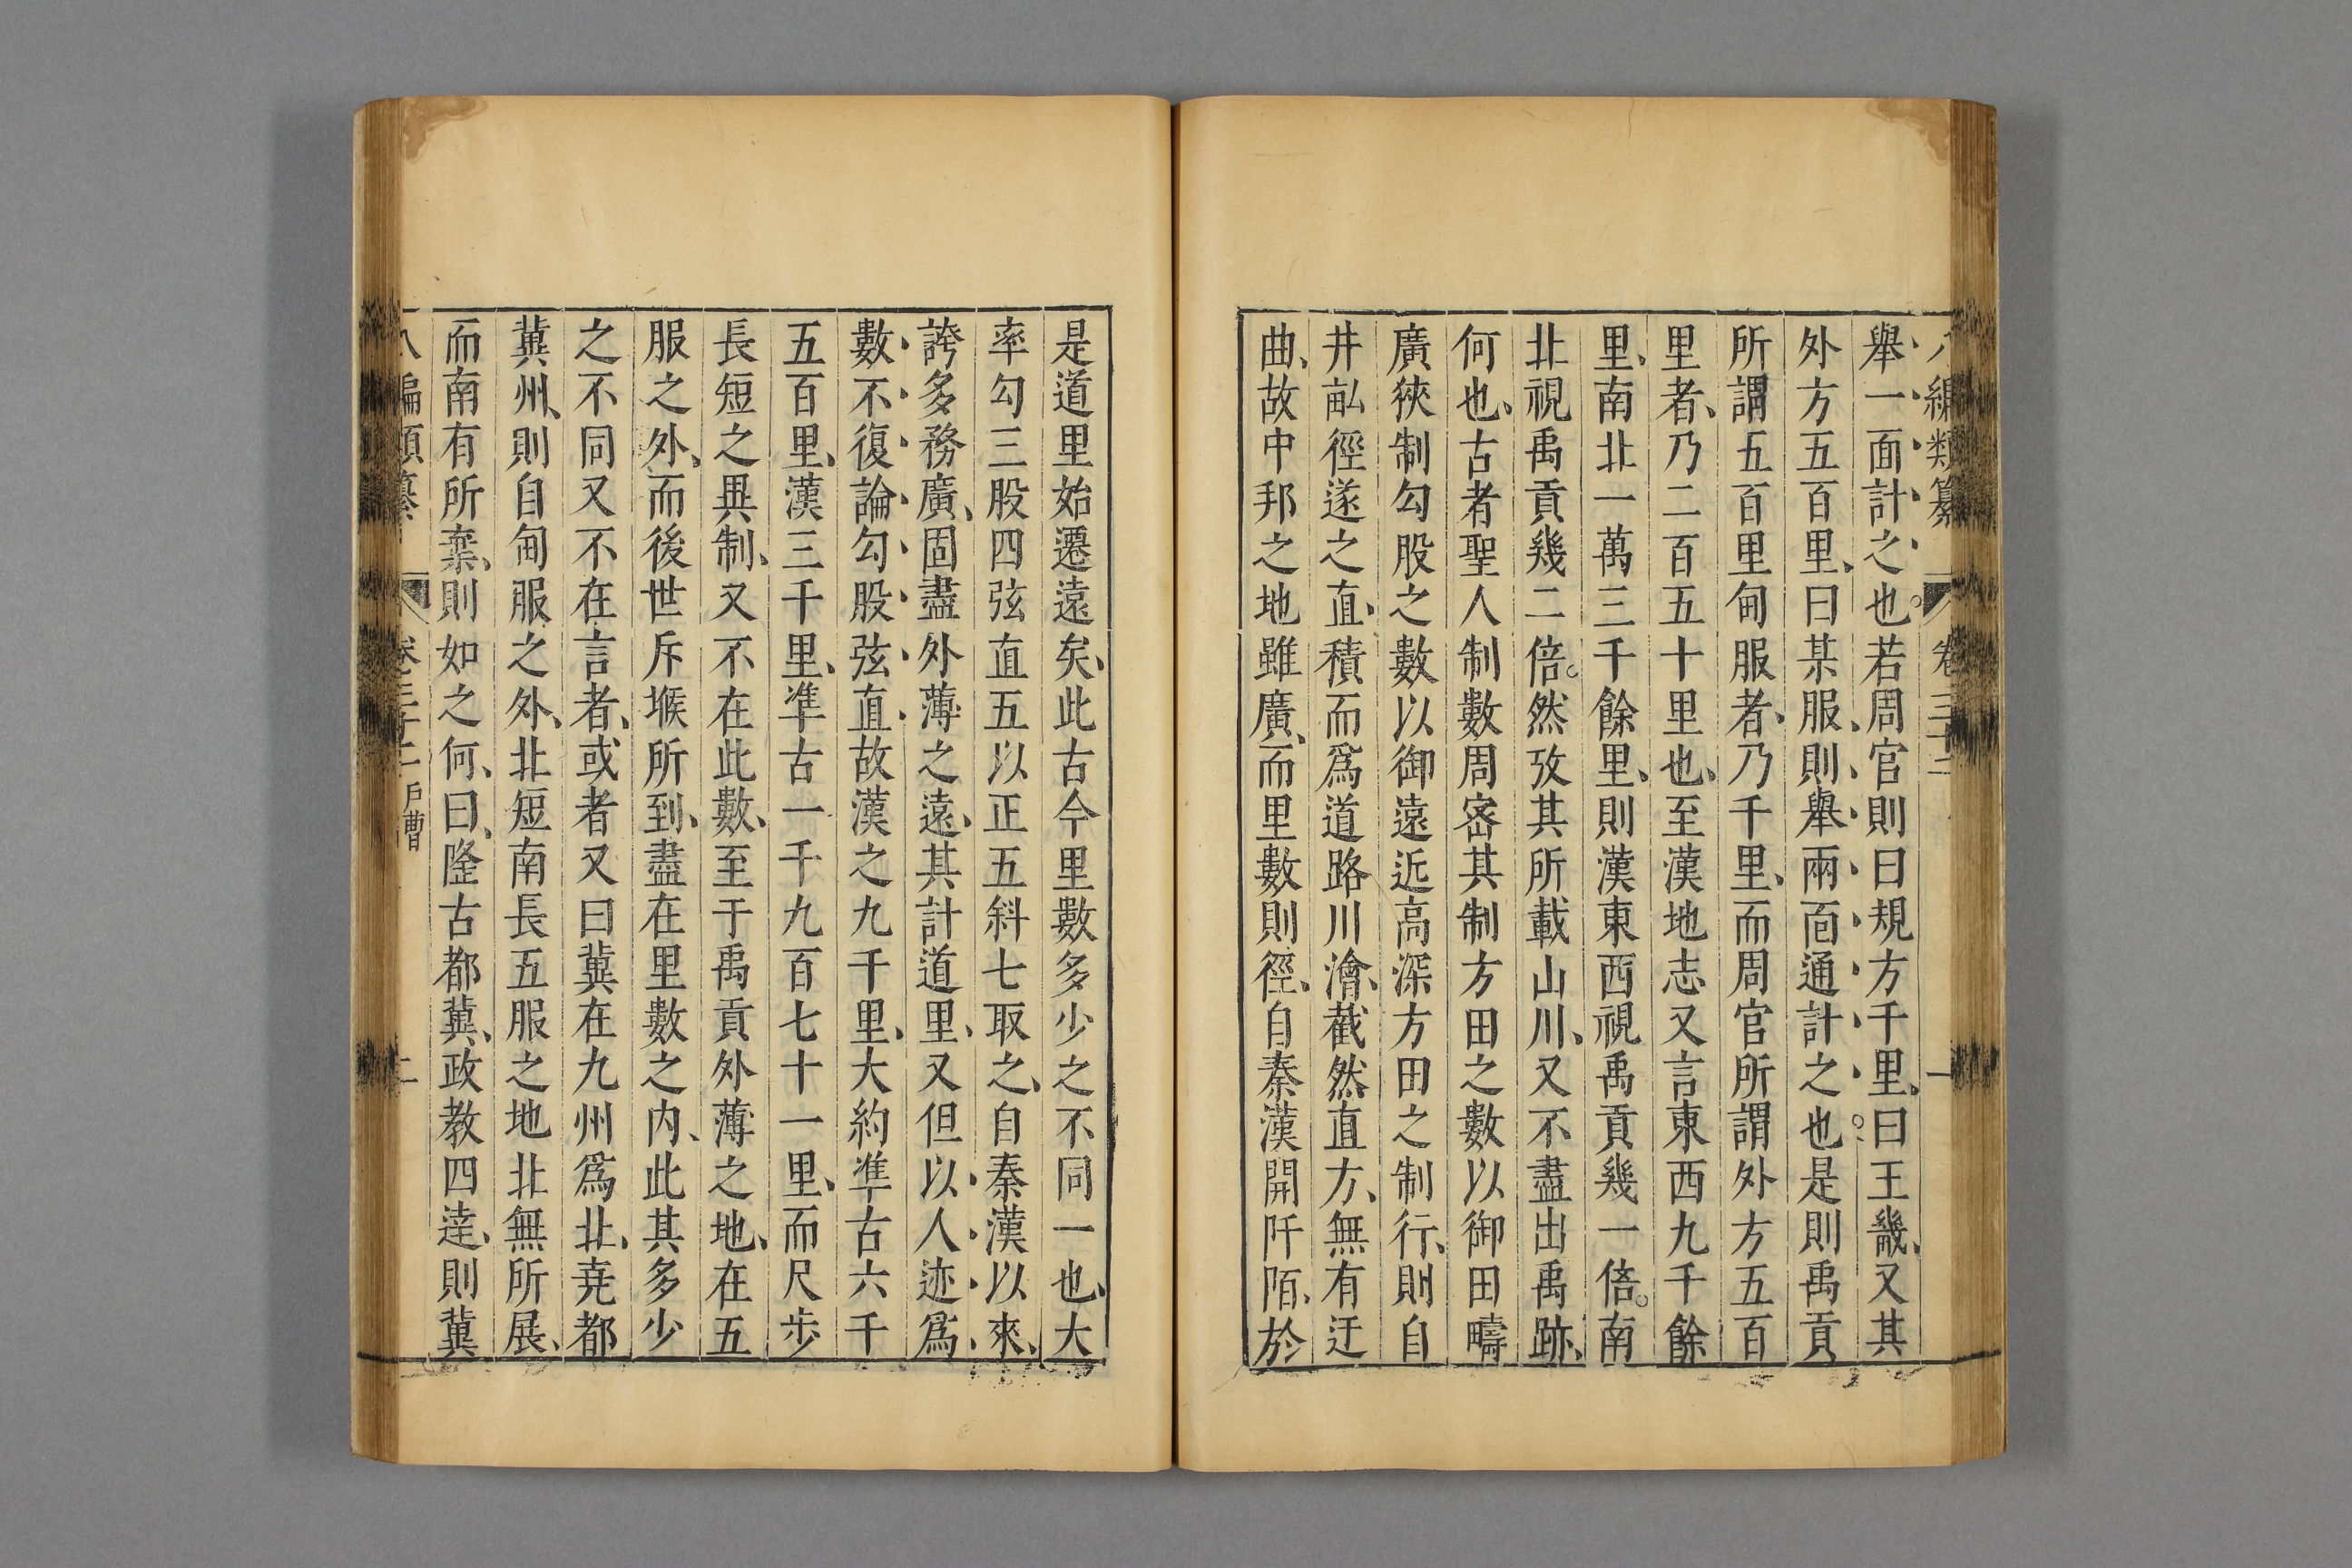 八編類纂 卷三十二 一
舉一面計之也。若周官則曰規方千里、曰王畿、又其
外方五百里、曰某服、則舉兩面通計之也是則禹貢
所謂五百里甸服者、乃千里、而周官所謂外方五百
里者、乃二百五十里也、至漢地志又言東西九千餘
里、南北一萬三千餘里、則漢東西視禹貢幾一倍。南
北視禹貢幾二倍。然攷其所載山川、又不盡出禹跡、
何也、古者聖人制數周密其制方田之數以御田疇
廣狹制勾股之數以御遠近高深方田之制行、則自
井畆徑遂之直、積而為道路川澮、截然直方、無有迂
曲、故中邦之地雖廣、而里數則徑、自秦漢開阡陌、於
是道里始遷遠矣、此古今里數多少之不同一也、大
率勾三股四弦直五以正五斜七取之、自秦漢以來、
誇多務廣、固盡外薄之遠、其計道里、又但以人迹為
數不復論勾股弦直故漢之九千里、大約準古六千
五百里、漢三千里、準古一千九百七十一里、而尺步
長短之異制、又不在此數、至于禹貢外薄之地、在五
服之外、而後世斥堠所到、盡在里數之内、此其多少
之不同又不在言者、或者又曰冀在九州爲北、堯都
冀州、則自甸服之外、北短南長五服之地北無所展、
而南有所棄、則如之何、曰、隆古都冀、政教四達、則冀
八編類纂 卷三十二 戶曹 二